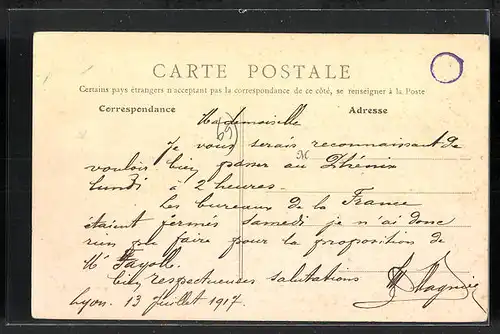 CARTE POSTALE
Certains pays étrangers n'acceptant pas la correspondance de ce côté, se renseigner à la Poste
Correspondance
Adresse
(69)
Mademoiselle
Je vous serais reconnaissant de
vouloir bien passer au Phénix
lundi à 2 heures.
Les bureaux de la France
étaient fermés samedi je n'ai donc
rien pu faire pour la proposition de
Mr Fayolle.
bien respectueuses salutations
Lyon. 13 Juillet 1917.